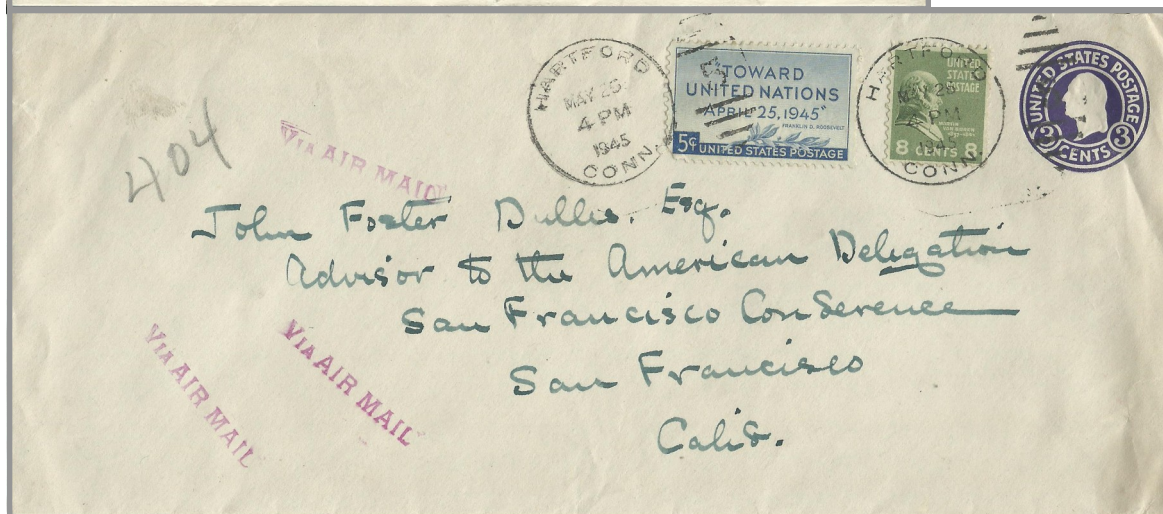 HARTFORD
MAY 25
4 PM
1945
CONN.
TOWARD
UNITED NATIONS
APRIL 25, 1945"
FRANKLIN D. ROOSEVELT
5¢ UNITED STATES POSTAGE
HARTFORD
MAY 25
PM
CONN.
UNITED
STATES
POSTAGE
MARTIN
VAN BUREN
8 CENTS 8
UNITED STATES POSTAGE
3 CENTS 3
404
VIA AIR MAIL
John Foster Dulles. Esq.
Advisor to the American Delegation
San Francisco Conference
San Francisco
Calif.
VIA AIR MAIL
VIA AIR MAIL